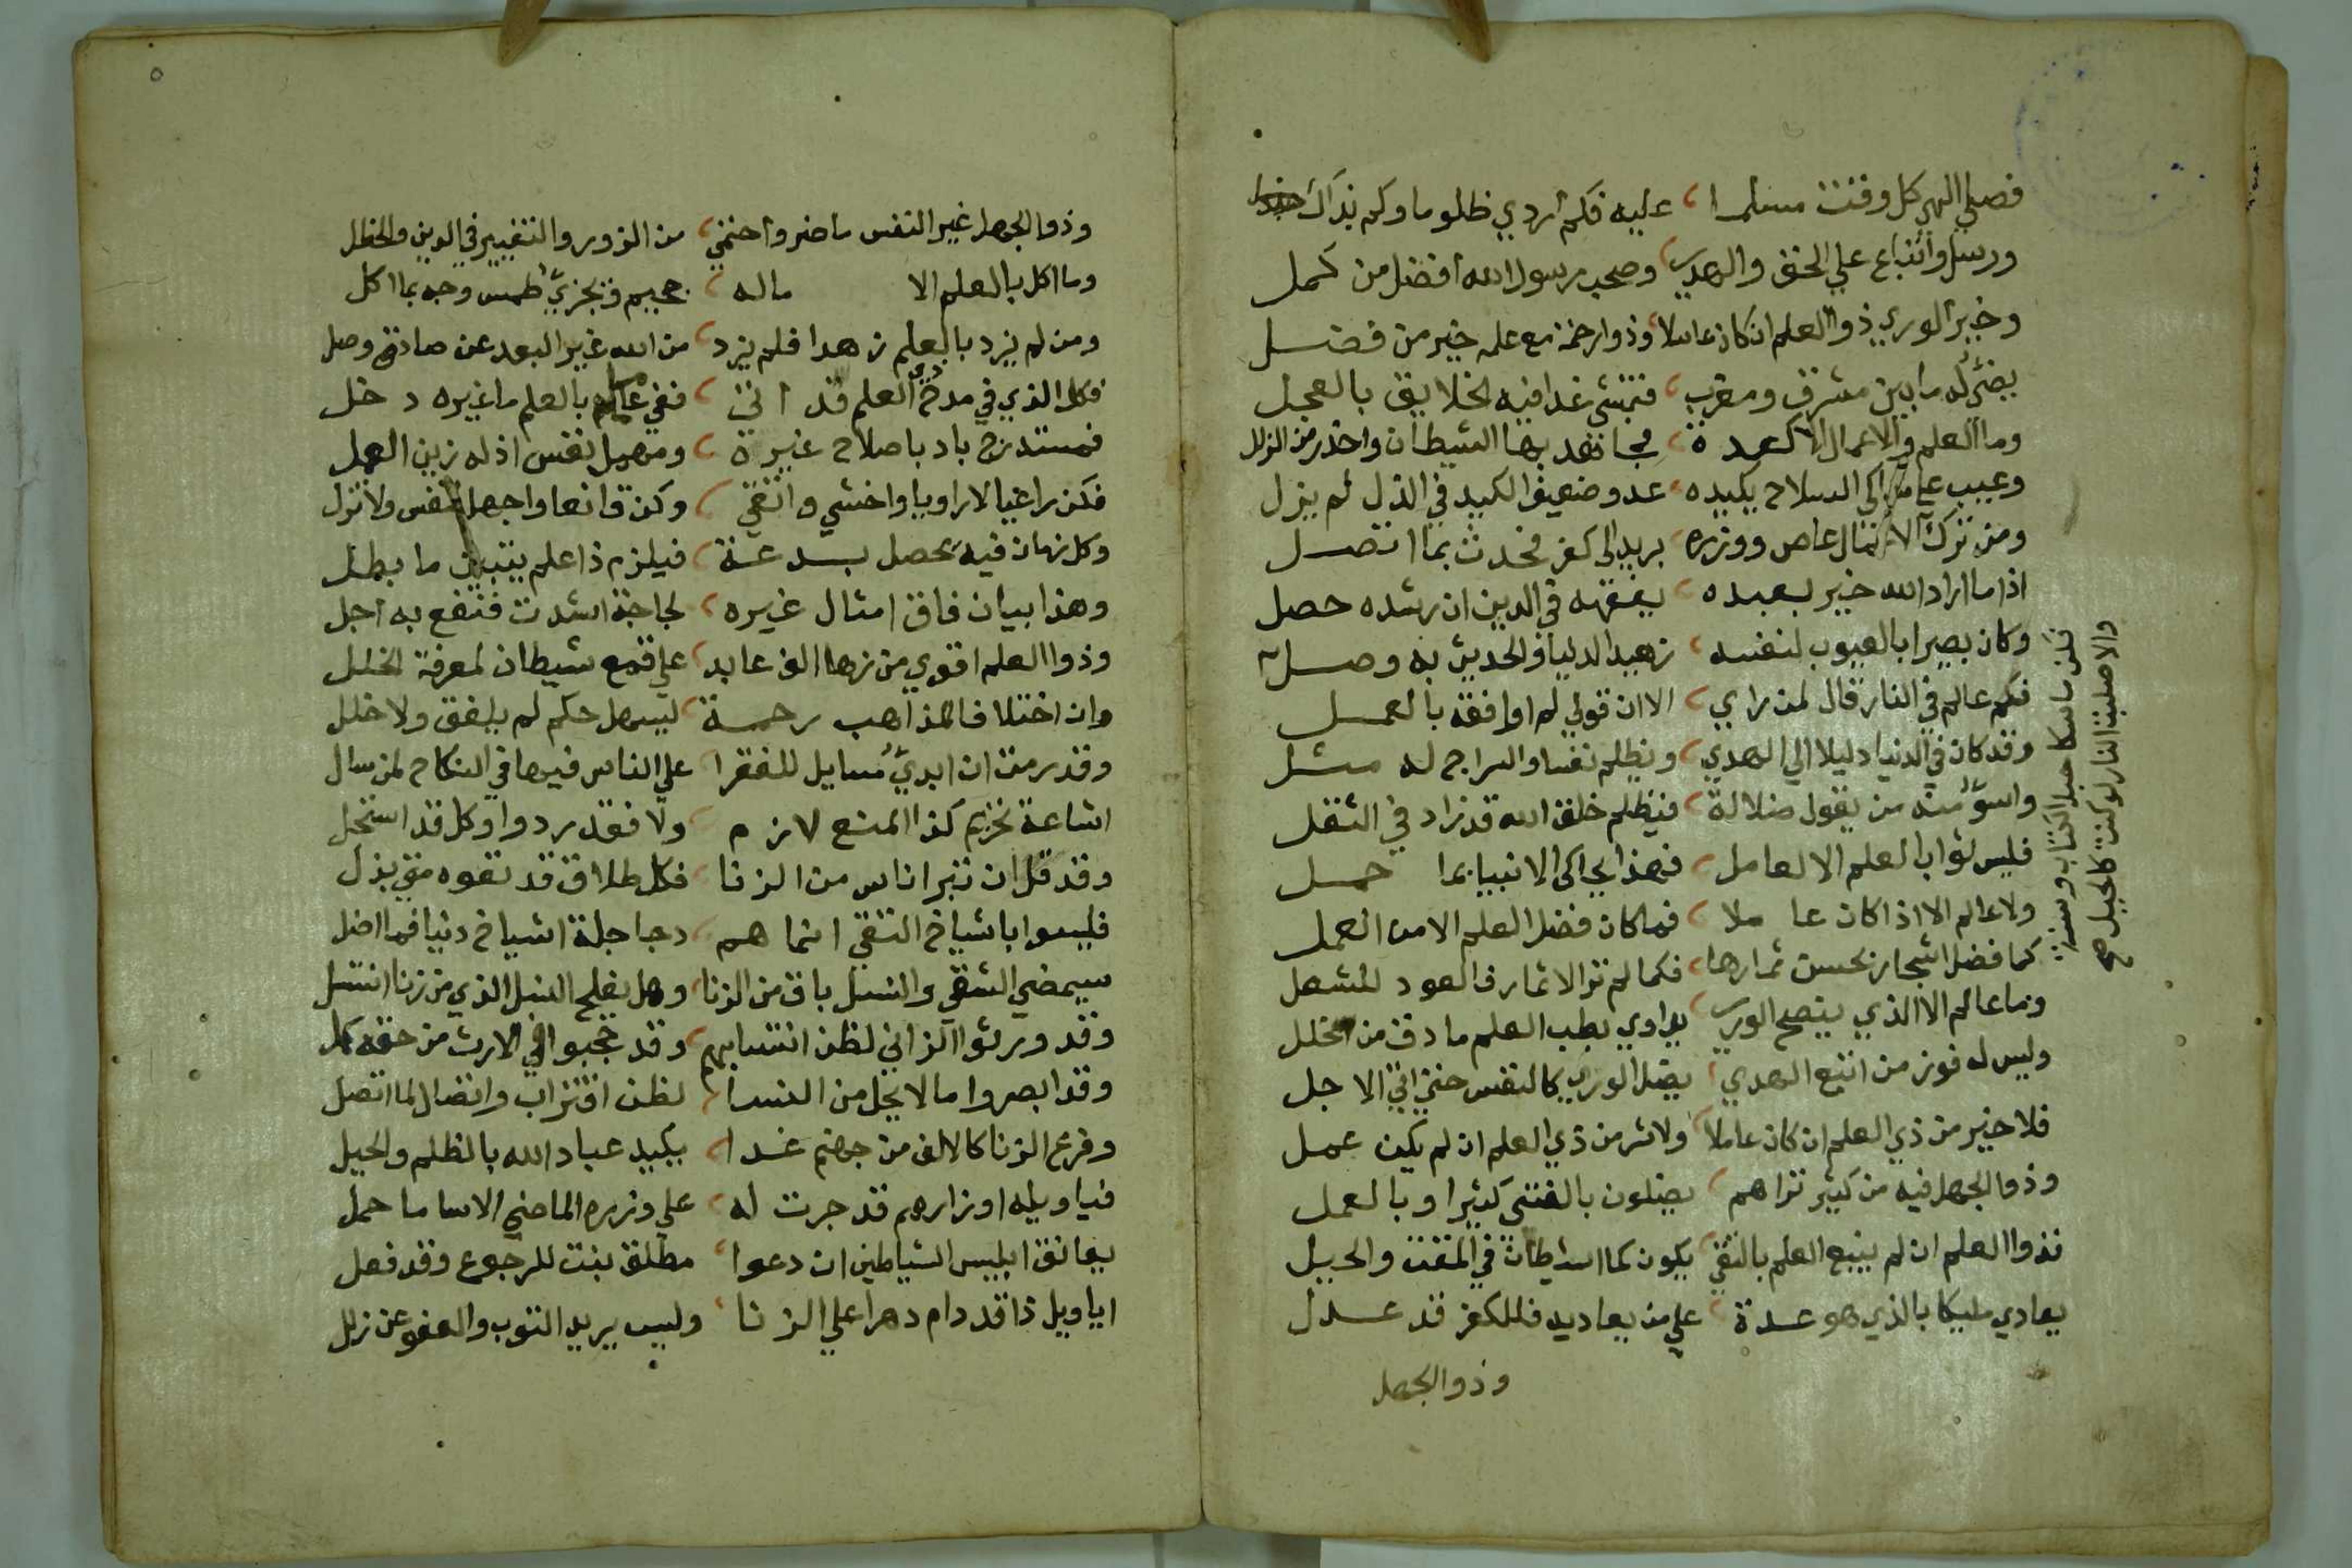 فصلي الهي كل وقت مسلما عليه فكم اردي ظلوما وكم بذاك
ورسل واتباع علي الحق والهدي وصحب رسول الله افضل من كمل
وخير الوري ذوا العلم ان كان عاملا وذوا رحمة مع علمه خير من فضل
يضئ له ما بين مشرق ومغرب فتمشي غدا فيه الخلايق بالعجل
وما العلم والاعمال الا كعدة فجاهد بها الشيطان واحذر من الزلل
وعيب علي شاكي السلاح يكيده عدو ضعيف الكيد في الذل لم يزل
ومن ترك الاعمال عاص ووزره بريد الي كفر فحدث بما اتصل
اذا ما اراد الله خير بعبده يفقهه في الدين ان رشده حصل
وكان بصيرا بالعيوب لنفسه زهيد الدنيا والحديث به وصل
فكم عالم في النار قال لمن راي الا ان قولي لم اوافقه بالعمل
وقد كان في الدنيا دليلا الي الهدي ويظلم نفسا والسراج له مثل
واسؤ منه من يقول ضلالة فيظلم خلق الله قد زاد في الثقل
فليس ثواب العلم الا لعامل فهذا يحاكي الانبيا بما حمل
ولا عالم الا اذا كان عا ملا فما كان فضل العلم الا من العمل
كما فضل اشجار بحسن ثمارها فكما لم تر الاثمار فالعود للشعل
وما عالم الا الذي ينصح الوري يداوي بطب العلم ما دق من الخلل
وليس له فوز من اتبع الهدي يضل الوري كالنفس حتي اتي الاجل
فلا خير من ذي العلم ان كان عاملا ولا شر من ذي العلم ان لم يكن عمل
وذوا الجهل فيه من كثير تراهم يضلون بالفتيى كثيرا وبالعمل
فذوا العلم ان لم يتبع العلم بالتقي يكون كما الشيطان في المقت والحيل
يعادي مليكا بالذي هو عدة علي من يعاديه فللكفر قد عدل
وذوا الجهل
فكن ماسكا حبل الكتاب وسنة
والا صليت النار لو كنت كالجبل صح
وذوا الجهل غير النفس ما ضر واختفي من الزور والتغيير في الدين والخطل
وما اكل بالعلم الا ماله جحيم ويجزي طمس وجه بما اكل
ومن لم يزد بالعلم زهدا فلم يزد من الله غير البعد عن صادق وصل
فكل الذي في مدح ذي العلم قد اتي ففي عامل بالعلم ما غيره دخل
فمستدرج باد باصلاح غيره ومهمل نفس اذ له زين العمل
فكن راعيا لا راويا واخشي واتقي وكن قانعا واجهل لنفس ولا تزل
وكل زمان فيه يحصل بدعة فيلزم ذا علم يبين ما بطل
وهذا بيان فاق امثال غيره لحاجة اشدت فنفع به اجل
وذوا العلم اقوي من زها الف عابد علي قمع شيطان لمعرفة الخلل
وان اختلاف المذاهب رحمة ليسهل حكم لم يلفق ولا خلل
وقد رمت ان ابدي مسايل للفقرا علي الناس فيها في النكاح لمن سال
اشاعة تحريم كذا المنع لازم ولا فقد ردوا وكل قد استحل
وقد قل ان تبرا ناس من الزنا فكل طلاق قد تفوه متي بذل
فليسوا باشياخ التقي انما هم دجاجلة اشياخ دنيا فما اضل
سيمضي الشقي والنسل باق من الزنا وهل يفلح النسل الذي من زنا انتسل
وقد ورثوا الزاني لظن انتسابهم وقد حجبوا في الارث من حقه كمل
وقد ابصروا ما لا يحل من النسا لظن اقتراب واتصال لما اتصل
وفرع الزنا كالالف من جهنم غدا يكيد عباد الله بالظلم والحيل
فيا ويله اوزارهم قد جرت له علي وزره الماضي الا سا ما حمل
يعانق ابليس الشياطين ان دعوا مطلق بنت للرجوع وقد فعل
ايا ويل ذا قد دام دهرا علي الزنا وليس يريد التوب والعفو عن زلل